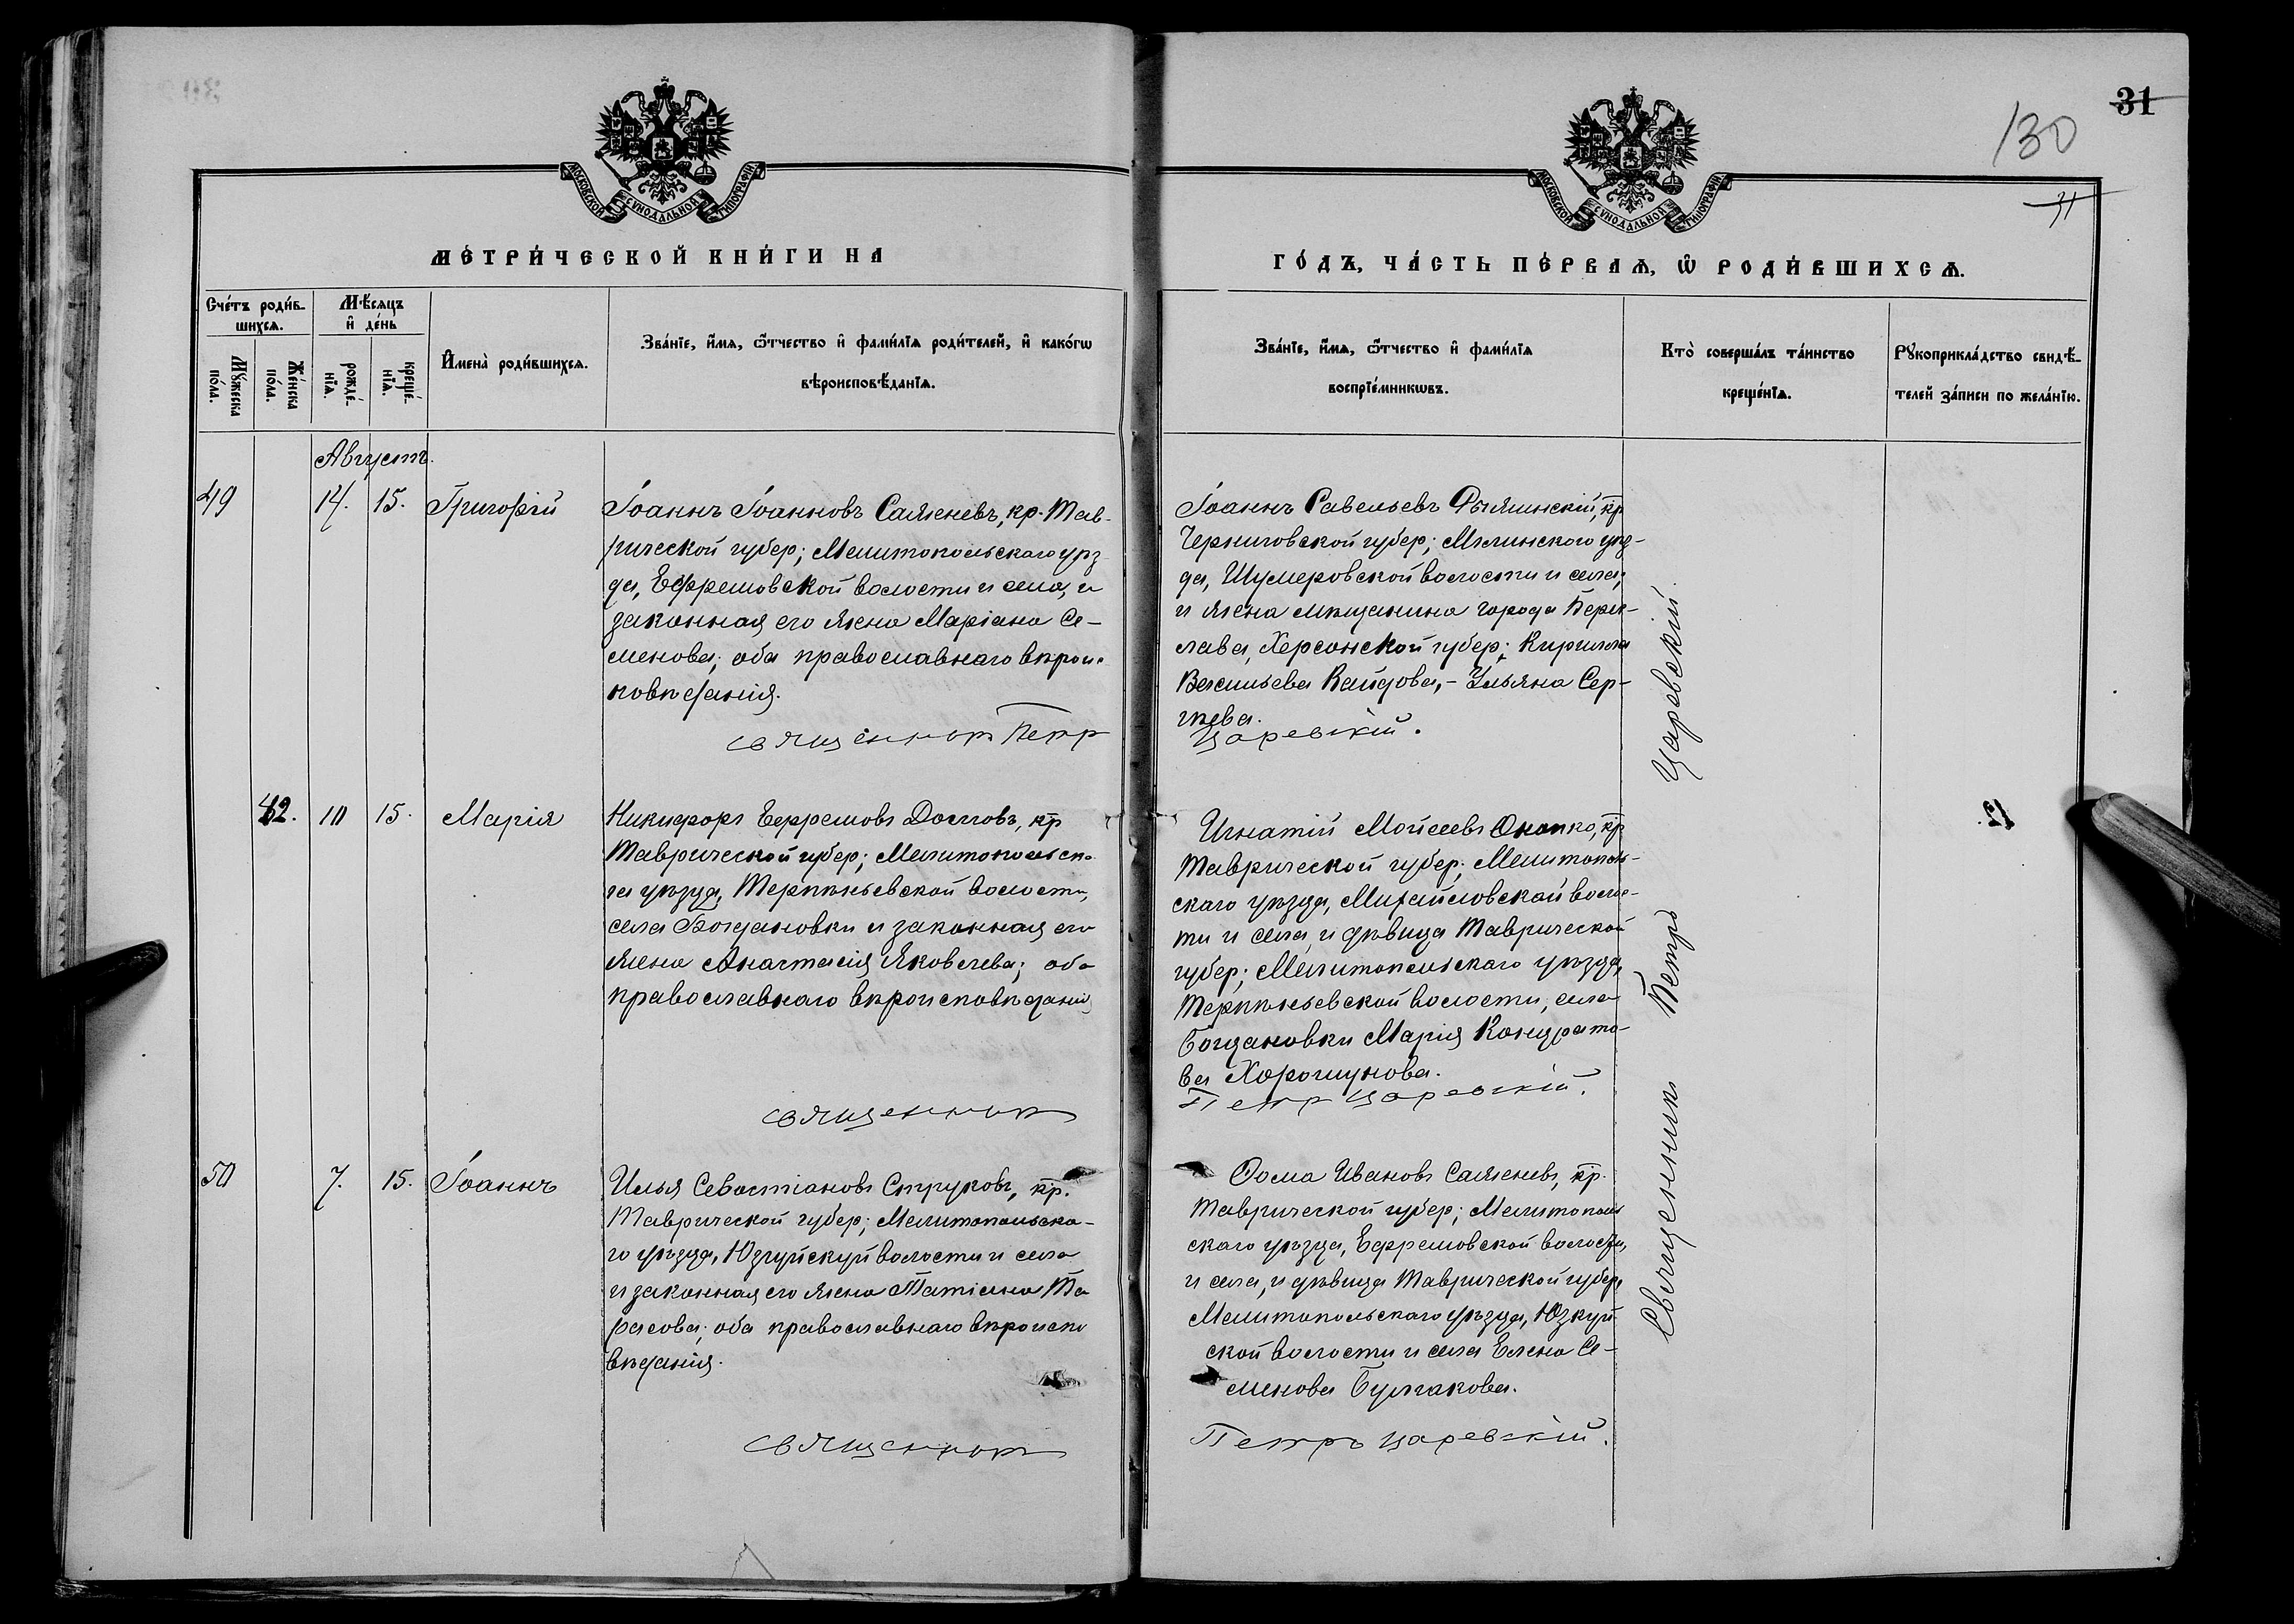 31
130
31
МОСКОВСКОЙ СУНОДАЛЬНОЙ ТИПОГРАФІИ
МОСКОВСКОЙ СУНОДАЛЬНОЙ ТИПОГРАФІИ
МЕТРИ́ЧЕСКОЙ КНИ́ГИ НА
ГО́ДЪ, ЧА́СТЬ ПЕ́РВАѦ, Ѡ҆ РОДИ́ВШИХСѦ.
Сче́тъ роди́в-
шихсѧ.
Мѣ́сяцъ
и҆ де́нь
Мꙋ́жеска
по́ла.
Же́нска
по́ла.
рожде́-
нїѧ.
креще́-
нїѧ.
И҆мена̀ роди́вшихсѧ.
Зва́нїе, и҆́мѧ, ѻ҆́тчество и҆ фами́лїѧ роди́телей, и҆ како́гѡ
вѣроисповѣ́данїѧ.
Зва́нїе, и҆́мѧ, ѻ҆́тчество и҆ фами́лїѧ
воспрїе́мникѡвъ.
Кто̀ соверша́лъ та́инство
креще́нїѧ.
Рꙋкоприкла́дство свидѣ́-
телей за́писи по жела́нїю.
Августъ.
49
14.
15.
Григорій
Іоаннъ Іоанновъ Саженевъ, кр. Тав-
рической губер; Мелитопольскаго уѣз-
да, Ефремовской волости и села, и
законная его жена Маріана Се-
менова; оба православнаго вѣроис-
повѣданія.
Священникъ Петръ
Іоаннъ Савельевъ кр
Черниговской губер; Мглинскаго уѣз-
да, Шумеровской волости и села;
и жена мѣщанина города Бери-
слава, Херсонской губер; Кирилла
Васильева Кайдова, - Ульяна Сер-
гѣева.
Царевскій.
42.
10
15.
Марія
Никифоръ Ефремовъ кр
Таврической губер; Мелитопольска-
го уѣзда, Терпѣньевской волости,
села Богдановки и законная его
жена Анастасія Яковлева; оба
православнаго вѣроисповѣданія
Священникъ
Игнатій Мойсеевъ кр
Таврической губер; Мелитополь-
скаго уѣзда, Михайловской волос-
ти и села, и дѣвица Таврической
губер; Мелитопольскаго уѣзда,
Терпѣньевской волости, села
Богдановки Марія Кондрато-
ва Хорошунова.
Петръ Царевскій.
12.
50
7.
15.
Іоаннъ
Илья Севастіановъ Струковъ, кр.
Таврической губер; Мелитопольска-
го уѣзда, Юзкуйскуй волости и села
и законная его жена Татіана Та
расова; оба православнаго вѣроиспо
вѣданія.
Священникъ
Ѳома Ивановъ Саженевъ, кр.
Таврической губер; Мелитополь
скаго уѣзда, Ефремовской волости,
и села, и дѣвица Таврической губер,
Мелитопольскаго уѣзда, Юзкуй
ской волости и села Елена Се-
менова Булгакова.
Петръ Царевскій.
Священникъ Петръ Царевскій